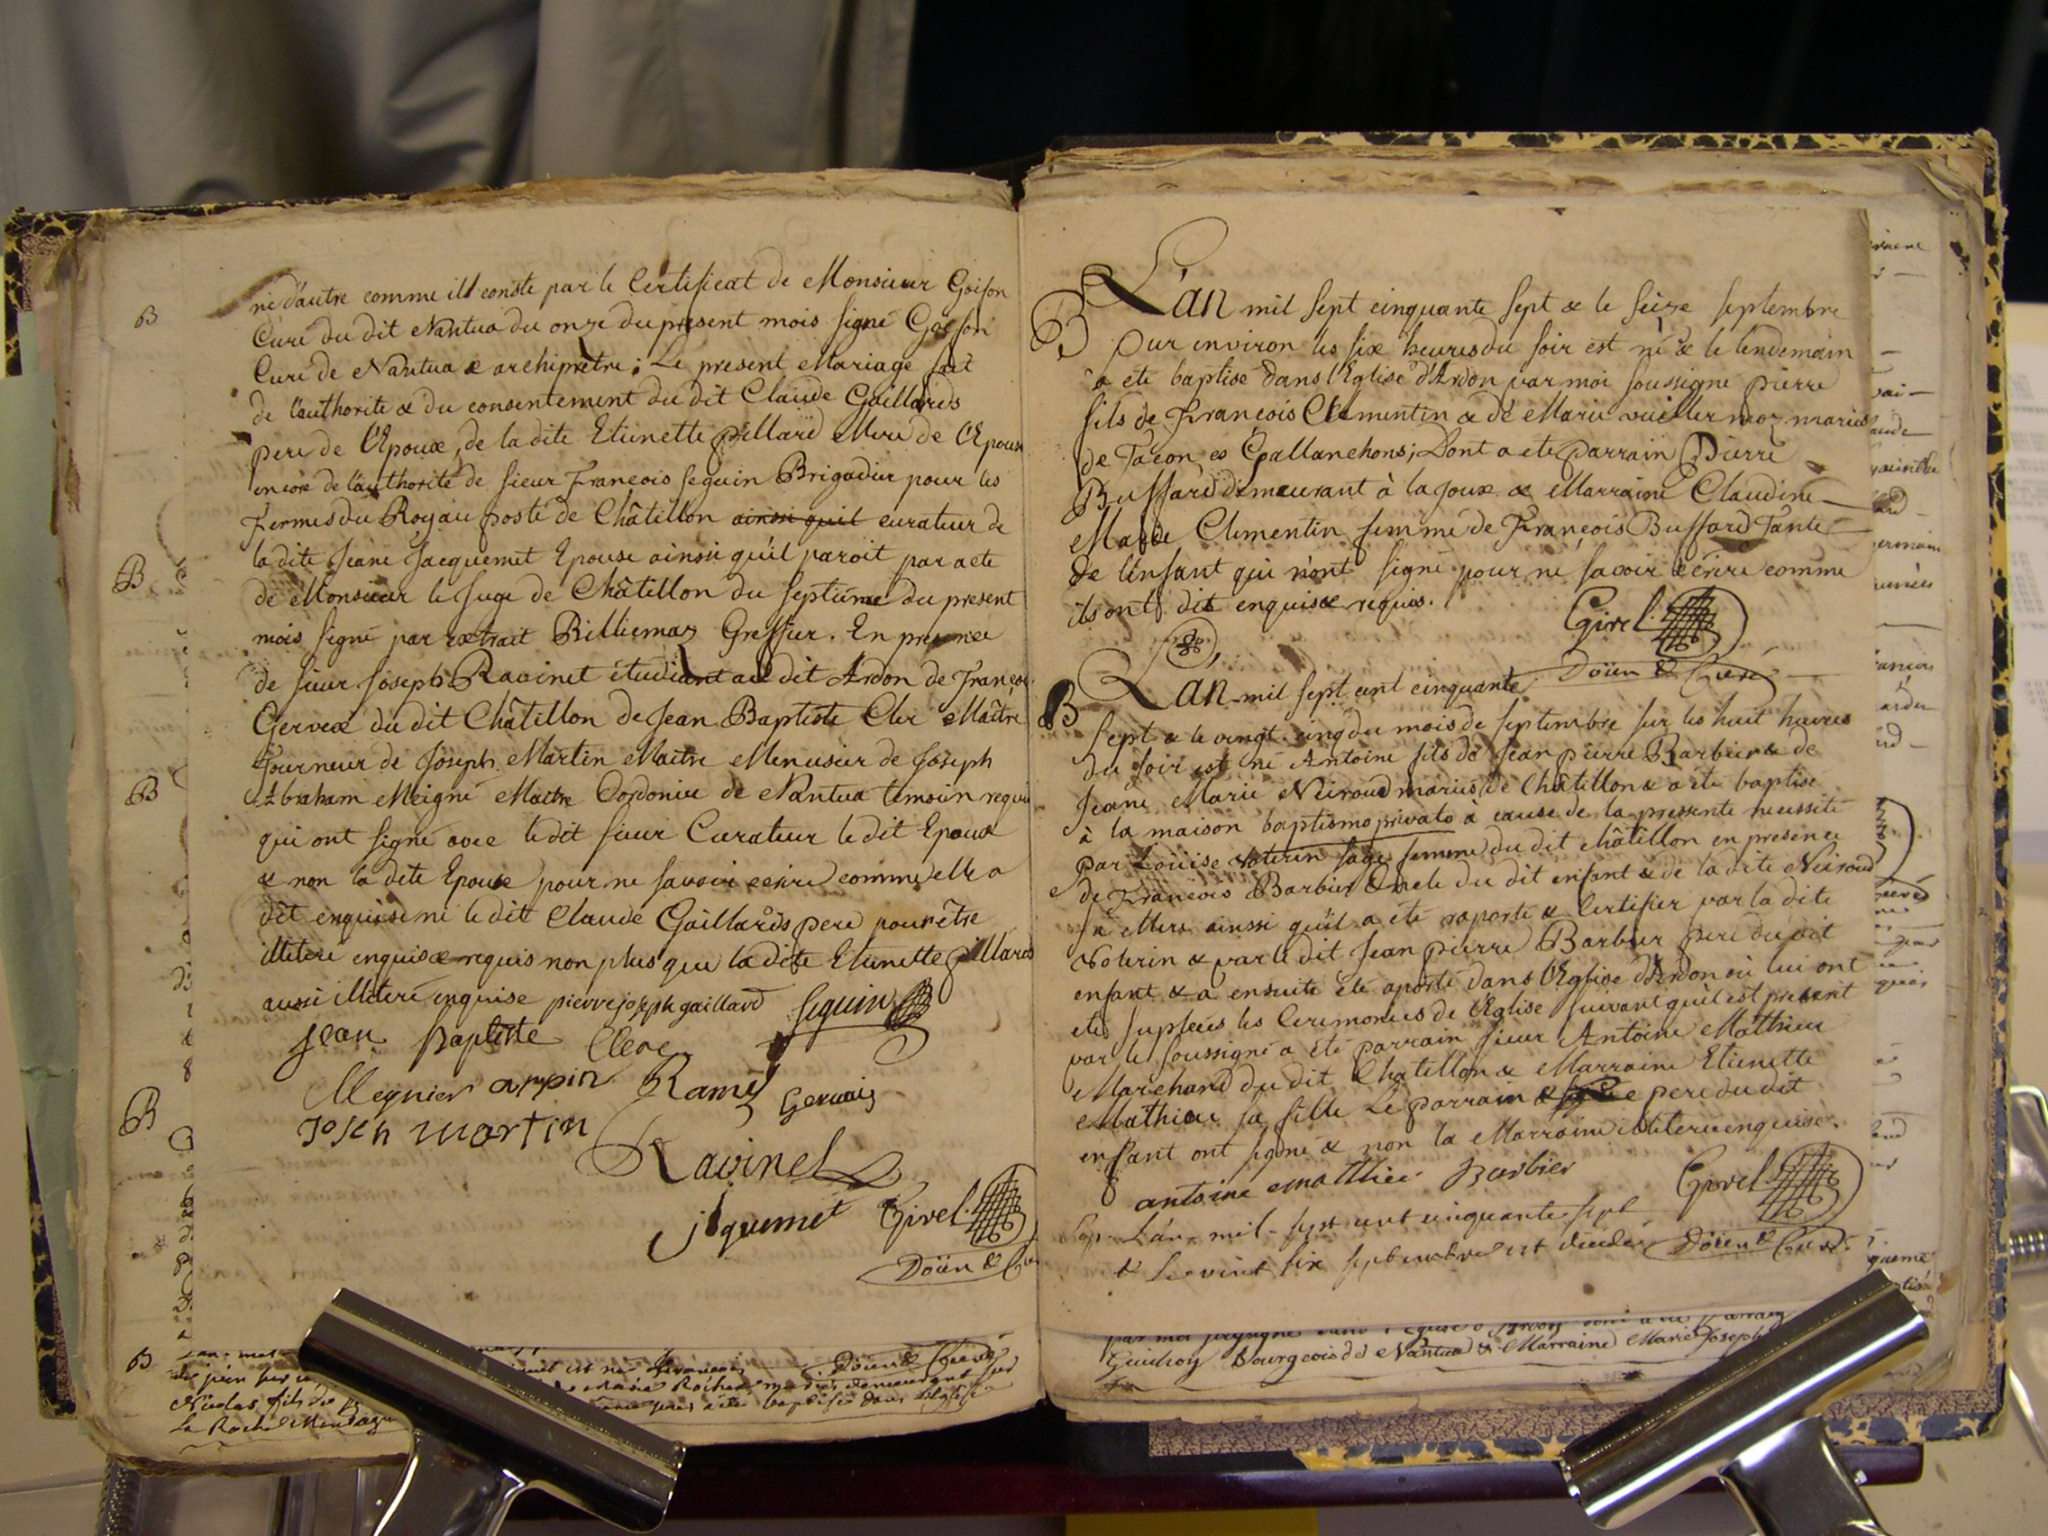 ne d'autre comme ill conste par le Certificat de Monsieur Goifon
Curé du dit Nantua du onze du present mois signé Goiffon
Curé de Nantua & archiprêtre; Le present Mariage fait
de l'authorité & du consentement du dit Claude Gaillards
pere de l'Epoux, de la dite Etienette pillard Mere de l'Epouse
encore de l'authorité de sieur François Seguin Brigadier pour les
Fermes du Roy au poste de Châtillon ainsi quil curateur de
la dite Jeane Jacquemet Epouse ainsi qu'il paroit par acte
de Monsieur le Juge de Châtillon du septième du present
mois signé par extrait Billiemaz Greffier. En presence
de sieur Joseph Ravinet étudiant au dit Ardon de François
Gervex du dit Châtillon de Jean Baptiste Cler Maître
Tourneur de Joseph Martin Maitre Menusier de Joseph
Abraham Meigné Maitre Cordonier de Nantua temoin requis
qui ont signé avec le dit sieur Curateur le dit Epoux
& non la dite Epouse pour ne savoir ecrire comme elle a
dit enquise ni le dit Claude Gaillards pere pour être
illiteré enquis & requis non plus que la dite Etienette pillard
aussi illiteré enquise pierre joseph gaillard Seguin
jean Baptiste Clerc
Megnier arpin Ramel Gervais
Joseh martin
Ravinet
jaquemet Girel
Doïen & Curé
B
B
B
B
B
Doïen & Curé
Nicolas fils de
La Roche
L'an mil sept cinquante sept & le seize septembre
B
sur environ les six heures du soir est né & le lendemain
a eté baptisé dans l'Eglise d'Ardon par moi soussigné pierre
fils de François Clementin & de Marie vuillermoz mariés
de Tacon es Gallanchons; Dont a eté parrain Pierre
Buffard demeurant à la Joux & Marraine Claudine
Clementin femme de François Buffard Tante
de l'enfant qui n'ont signé pour ne savoir écrire comme
ils ont dit enquis & requis. Girel
Doïen & Curé
B
L'an mil sept cent cinquante
sept & le vingt cinq du mois de septembre sur les huit heures
du soir est né Antoine fils de Jean pierre Barbier & de
Jeane Marie Neiroud mariés de Châtillon & a eté baptisé
à la maison baptismo privato à cause de la pressente necessité
par Louise voterin sage femme du dit châtillon en presence
de François Barbier Oncle du dit enfant & de la dite Neiroud
sa Mere ainsi qu'il a eté raporté & Certifier par la dite
voterin & par le dit Jean pierre Barbier pere du dit
enfant & a ensuite eté aporté dans l'Eglise d'Ardon où lui ont
eté supleés les Ceremonies de l'Eglise suivant qu'il est prescrit
par le soussigné a eté parrain sieur Antoine Matthieu
Marchand du dit Chatillon & Marraine Etienette
Mathieu sa fille Le parrain & pere du dit
enfant ont signé & non la Marraine illiterée enquise.
antoine matthieu Barbier Girel
L'an mil sept cent cinquante sept Doïen & Curé.
& le vint six septembre est decedé
par moi soussigné dans l'Eglise d'Ardon dont a eté parrain
Bourgeois de Nantua & Marraine Marie Joseph